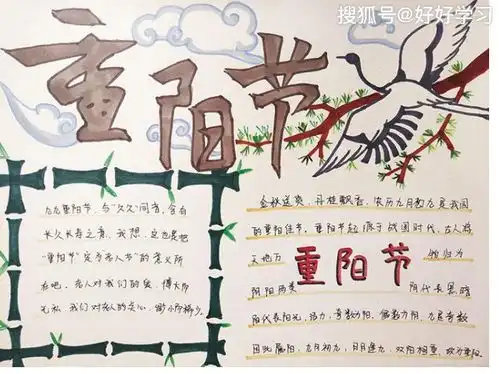 搜狐号@好好学习
重阳节
九九重阳节，与"久久"同音，含有
长久长寿之意，我想，这也是把
"重阳节"定为老人节"的意义所
在吧，老人对我们的爱，博大而
无私，我们对老人的关心，
金秋送爽，丹桂飘香，农历九月初九是我国
的重阳佳节，重阳节起源于战国时代，古人将
天地万
归为
重阳节
阴阳两类
阴代表黑暗
阳代表阳光，活力，奇数为阳，偶数为阴，九是奇数
因此属阳，九月初九，日月逢九，双阳相重，故为重阳。